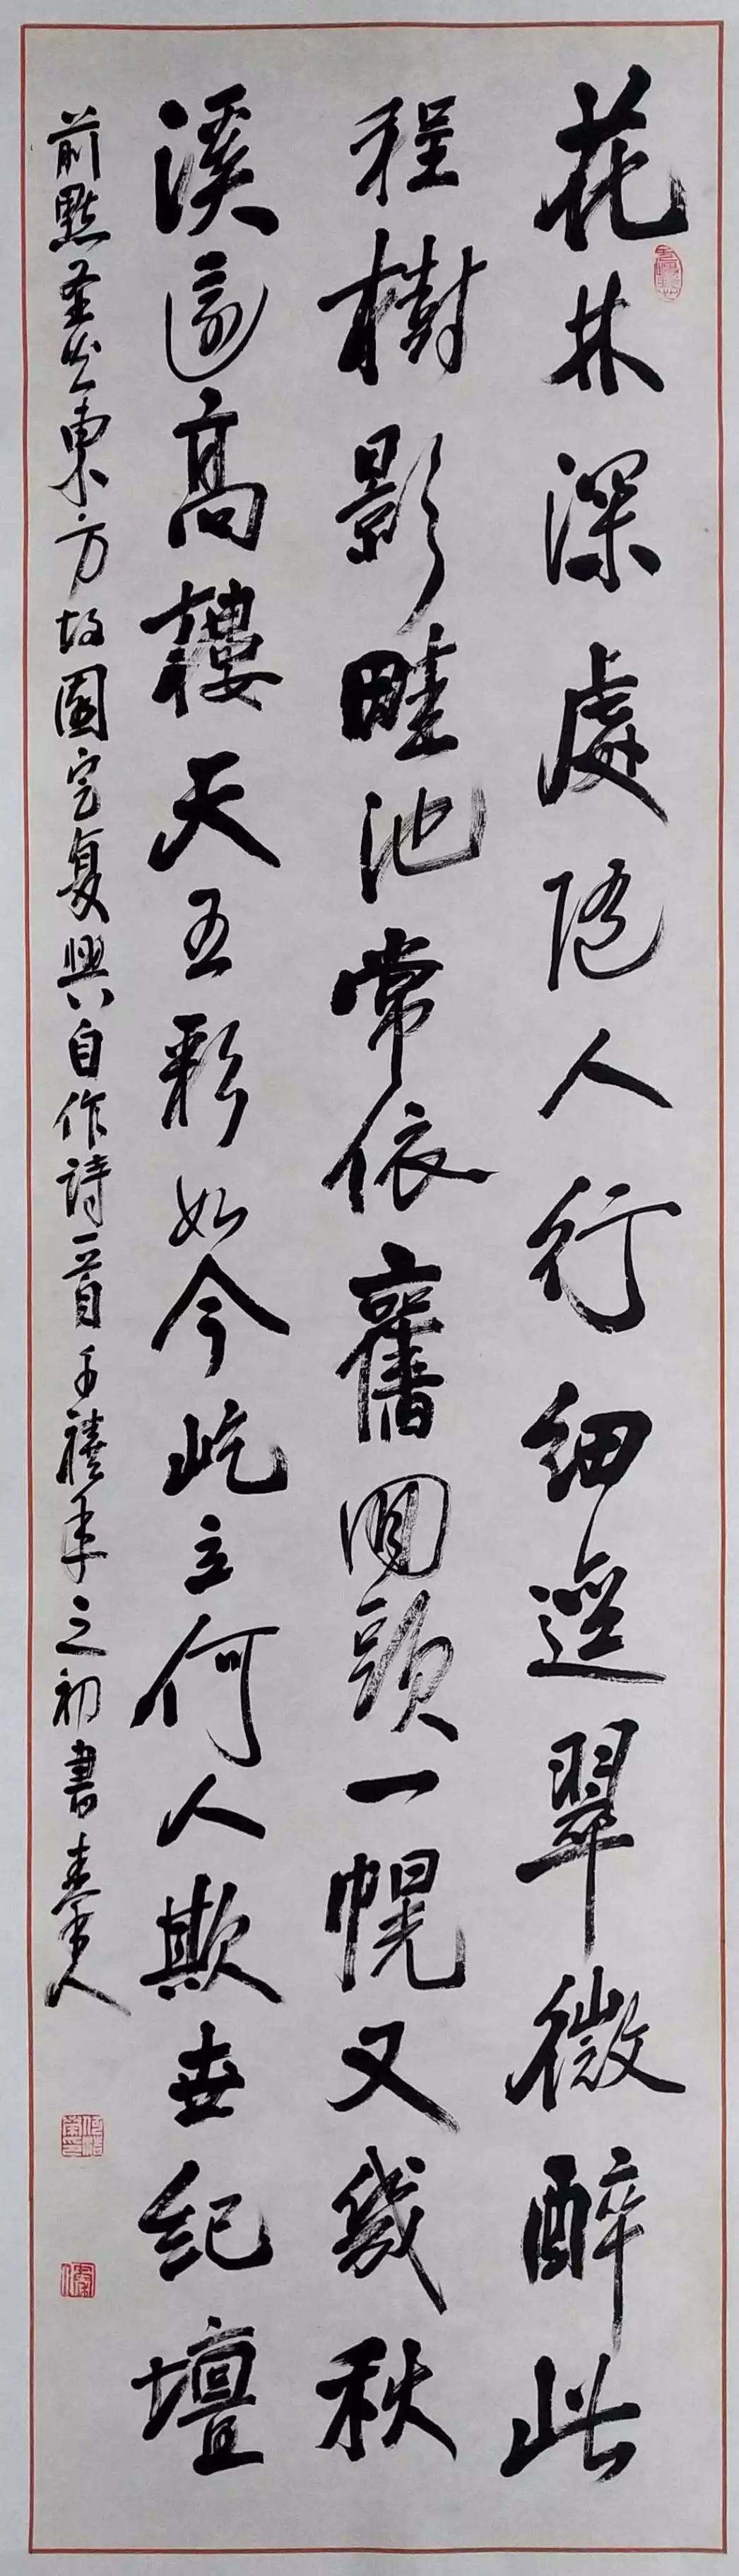 花林深處隱人行細逕翠微醉此
程樹影畦池常依舊回頭一幌又幾秋
溪前高樓天五彩如今屹立何人欺世紀壇
前點聖火東方故園定復興自作詩一首千禧年之初書